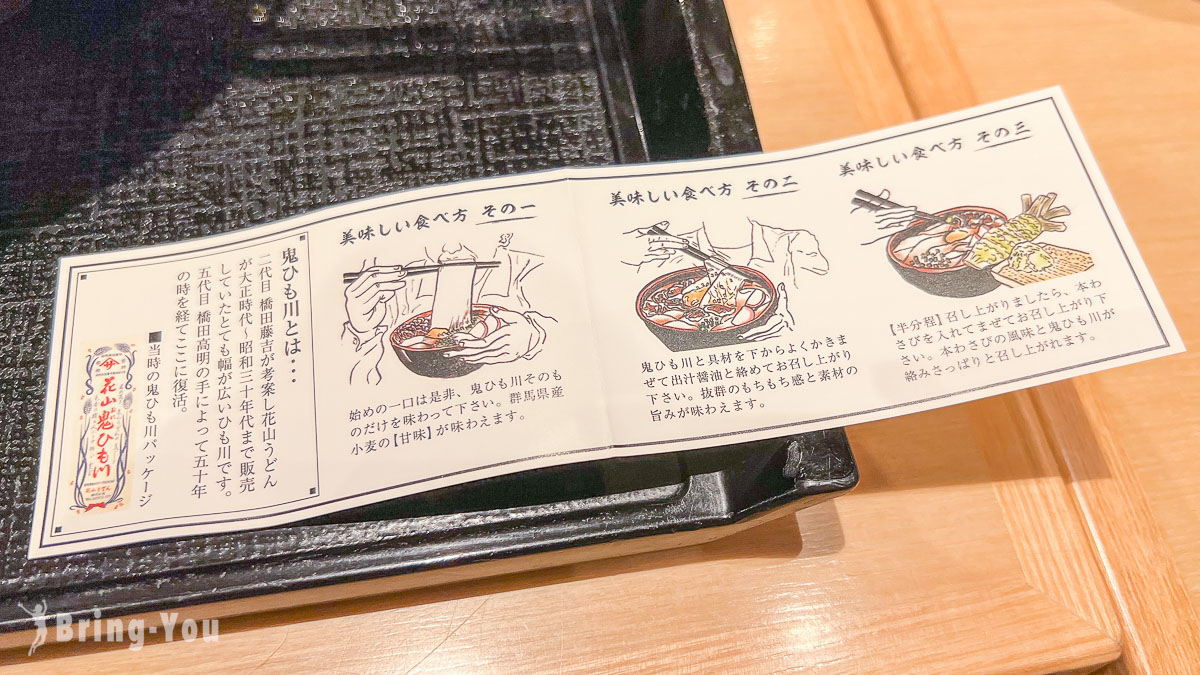 鬼ひも川とは・・・
二代目 橋田藤吉が考案し花山うどん
が大正時代、昭和三十年代まで販売
していたとても幅が広いひも川です。
五代目 橋田高明の手によって五十年
の時を経てここに復活。
■当時の鬼ひも川パッケージ
花山鬼ひも川
美味しい食べ方 その一
始めの一口は是非、鬼ひも川そのも
のだけを味わって下さい。群馬県産
小麦の【甘味】が味わえます。
美味しい食べ方 その二
鬼ひも川と具材を下からよくかきま
ぜて出汁醤油と絡めてお召し上がり
下さい。抜群のもちもち感と素材の
旨みが味わえます。
美味しい食べ方 その三
【半分程】召し上がりましたら、本わ
さびを入れてまぜてお召し上がり下
さい。本わさびの風味と鬼ひも川が
絡みさっぱりと召し上がれます。
Bring-You